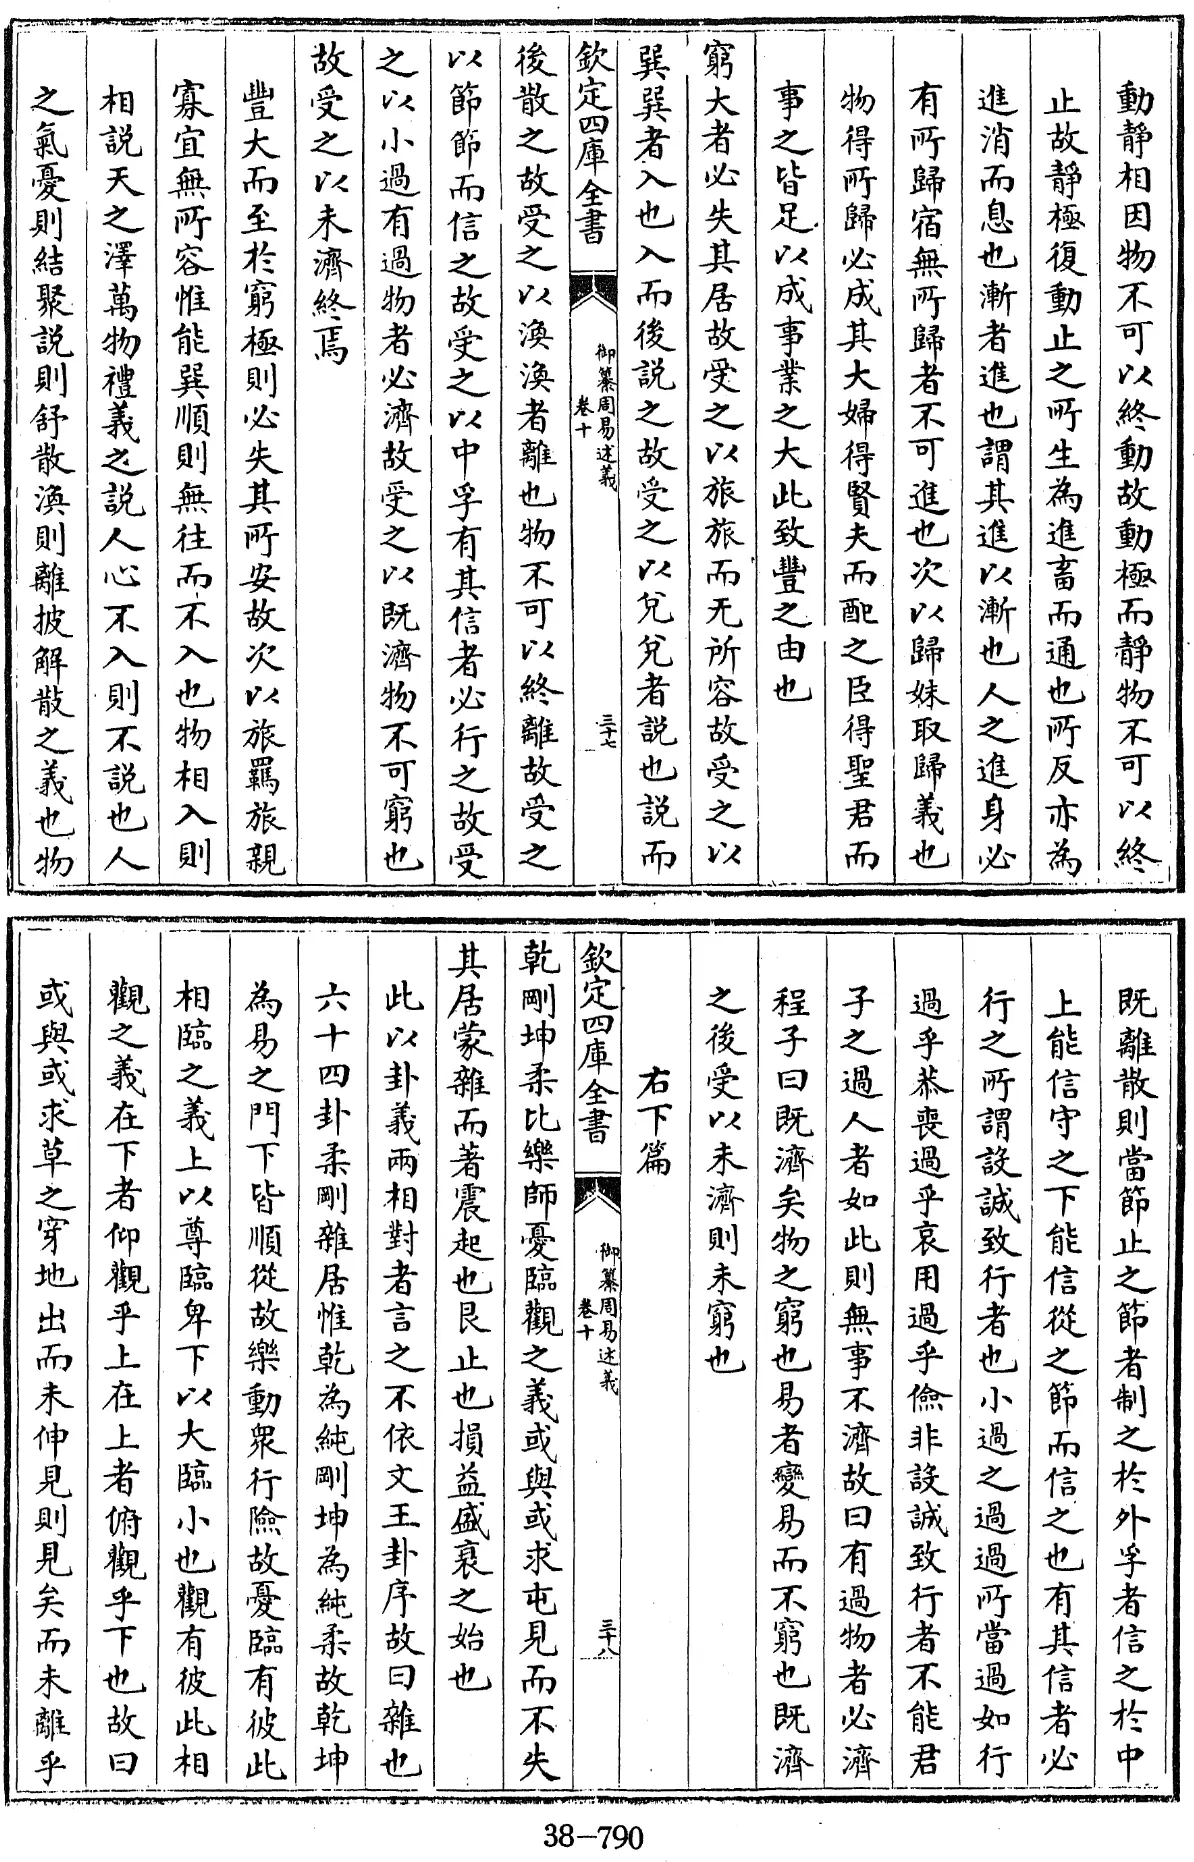 動靜相因物不可以終動故動極而靜物不可以終
止故靜極復動止之所生為進畜而通也所反亦為
進消而息也漸者進也謂其進以漸也人之進身必
有所歸宿無所歸者不可進也次以歸妹取歸義也
物得所歸必成其大婦得賢夫而配之臣得聖君而
事之皆足以成事業之大此致豐之由也
窮大者必失其居故受之以旅旅而无所容故受之以
巽巽者入也入而後説之故受之以兌兌者説也説而
欽定四庫全書
御纂周易述義
卷十
三十七
後散之故受之以渙渙者離也物不可以終離故受之
以節節而信之故受之以中孚有其信者必行之故受
之以小過有過物者必濟故受之以既濟物不可窮也
故受之以未濟終焉
豐大而至於窮極則必失其所安故次以旅羈旅親
寡宜無所容惟能巽順則無往而不入也物相入則
相説天之澤萬物禮義之説人心不入則不説也人
之氣憂則結聚説則舒散渙則離披解散之義也物
既離散則當節止之節者制之於外孚者信之於中
上能信守之下能信從之節而信之也有其信者必
行之所謂設誠致行者也小過之過過所當過如行
過乎恭喪過乎哀用過乎儉非設誠致行者不能君
子之過人者如此則無事不濟故曰有過物者必濟
程子曰既濟矣物之窮也易者變易而不窮也既濟
之後受以未濟則未窮也
右下篇
欽定四庫全書
御纂周易述義
卷十
三十八
乾剛坤柔比樂師憂臨觀之義或與或求屯見而不失
其居蒙雜而著震起也艮止也損益盛衰之始也
此以卦義兩相對者言之不依文王卦序故曰雜也
六十四卦柔剛雜居惟乾為純剛坤為純柔故乾坤
為易之門下皆順從故樂動衆行險故憂臨有彼此
相臨之義上以尊臨卑下以大臨小也觀有彼此相
觀之義在下者仰觀乎上在上者俯觀乎下也故曰
或與或求草之穿地出而未伸見則見矣而未離乎
38-790